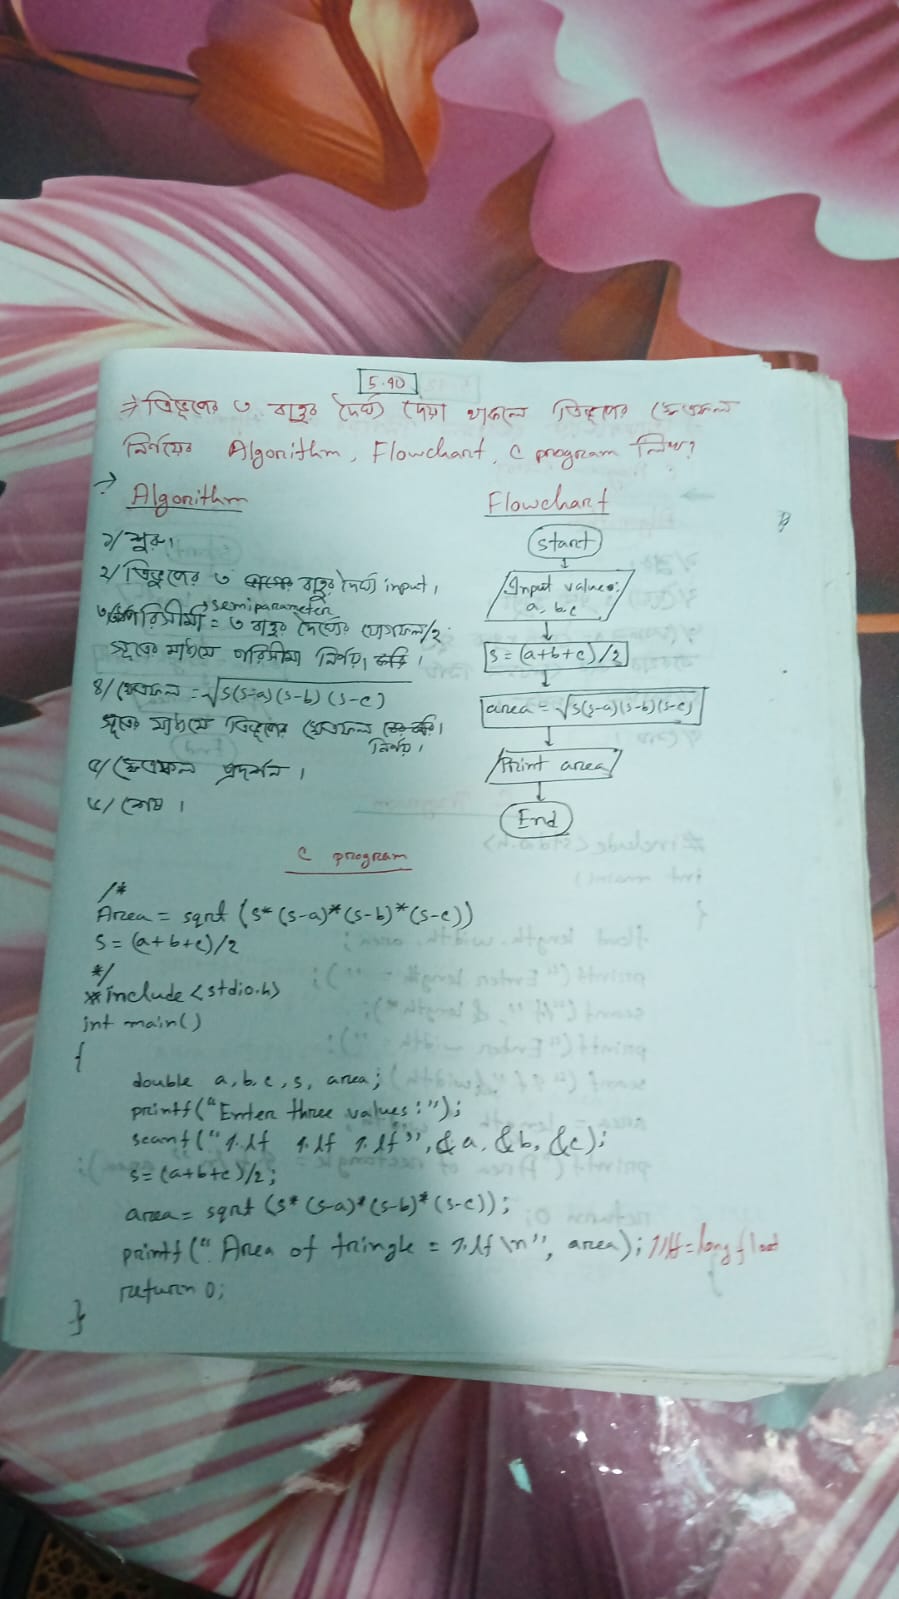 5.40
⇒ ত্রিভুজের ৩ বাহুর দৈর্ঘ্য দেয়া থাকলে ত্রিভুজের ক্ষেত্রফল
নির্ণয়ের Algorithm, Flowchart, C program লিখ?
→ Algorithm
১/ শুরু।
২/ ত্রিভুজের ৩ বাহুর দৈর্ঘ্য input,
semiparameter
৩/ পরিসীমা = ৩ বাহুর দৈর্ঘ্যের যোগফল/2
সূত্রের মাধ্যমে পরিসীমা নির্ণয়।
৪/ ক্ষেত্রফল = √s(s-a)(s-b)(s-c)
সূত্রের মাধ্যমে ত্রিভুজের ক্ষেত্রফল
নির্ণয়।
৫/ ক্ষেত্রফল প্রদর্শন।
৬/ শেষ।
Flowchart
Start
Input values:
a, b, c
s = (a+b+c)/2
area = √s(s-a)(s-b)(s-c)
Print area
End
C program
/*
Area = sqrt (s* (s-a)*(s-b)*(s-c))
s = (a+b+c)/2
*/
#include <stdio.h>
int main()
{
double a, b, c, s, area;
printf("Enter three values:");
scanf("%lf %lf %lf", &a, &b, &c);
s = (a+b+c)/2;
area = sqrt (s* (s-a)*(s-b)*(s-c));
printf(" Area of tringle = %lf \n", area); //lf = long float
return 0;
}